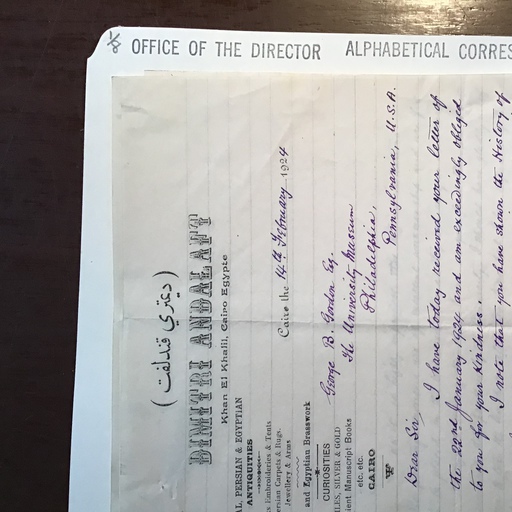 (ديمتري قندلفت)
DIMITRI ANDALAFT
Khan El Khalil, Cairo Egypte
AL, PERSIAN & EGYPTIAN
ANTIQUITIES
s Embroideries & Tents
ersian Carpets & Rugs.
Jewellery & Arms
and Egyptian Brasswork
CURIOSITIES
ILES, SILVER & GOLD
cient Manuscript Books
etc. etc.
CAIRO
Cairo the 14th February 1924
George B. Gordon Esq.
The University Museum
Philadelphia,
Pennsylvania, U.S.A.
Dear Sir,
I have today received your letter of
the 22nd January 1924 and am exceedingly obliged
to you for your kindness.
I note that you have shown the History of
OFFICE OF THE DIRECTOR ALPHABETICAL CORRES